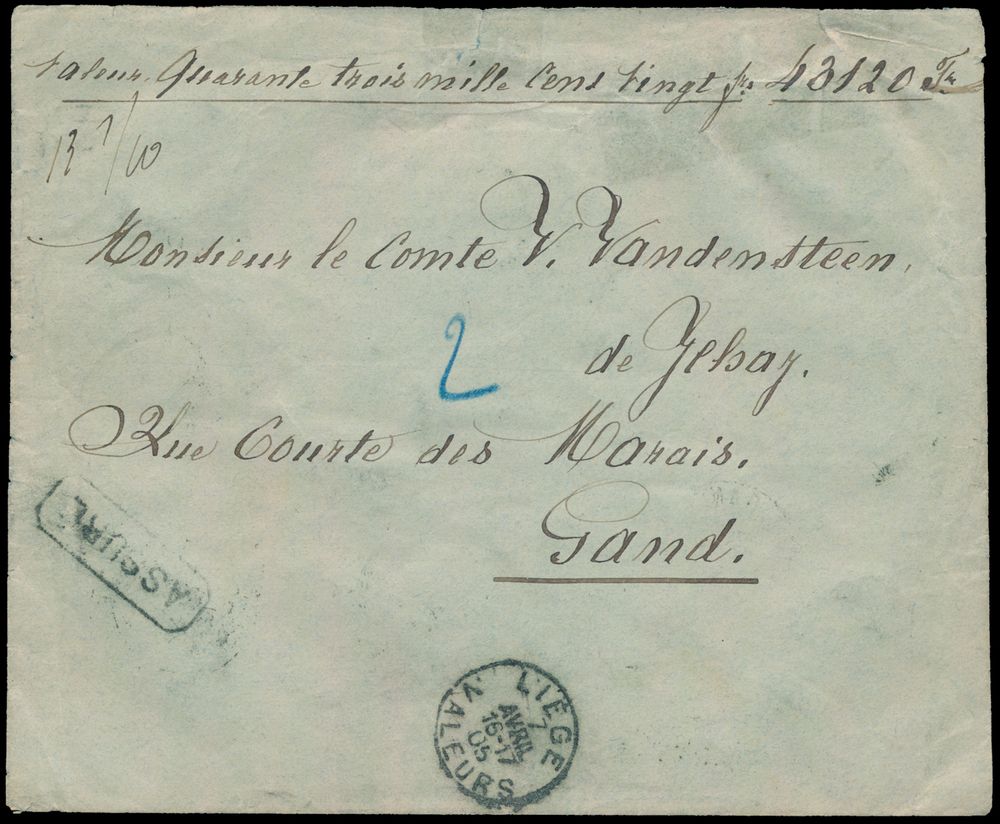 Valeur Quarante trois mille Cent Vingt frs 43120 Fr
Monsieur le Comte V. Vandensteen,
de Jehay.
2
Rue Courte des Marais.
Gand.
ASSURÉ
LIÉGE
7
AVRIL
16-17
05
VALEURS